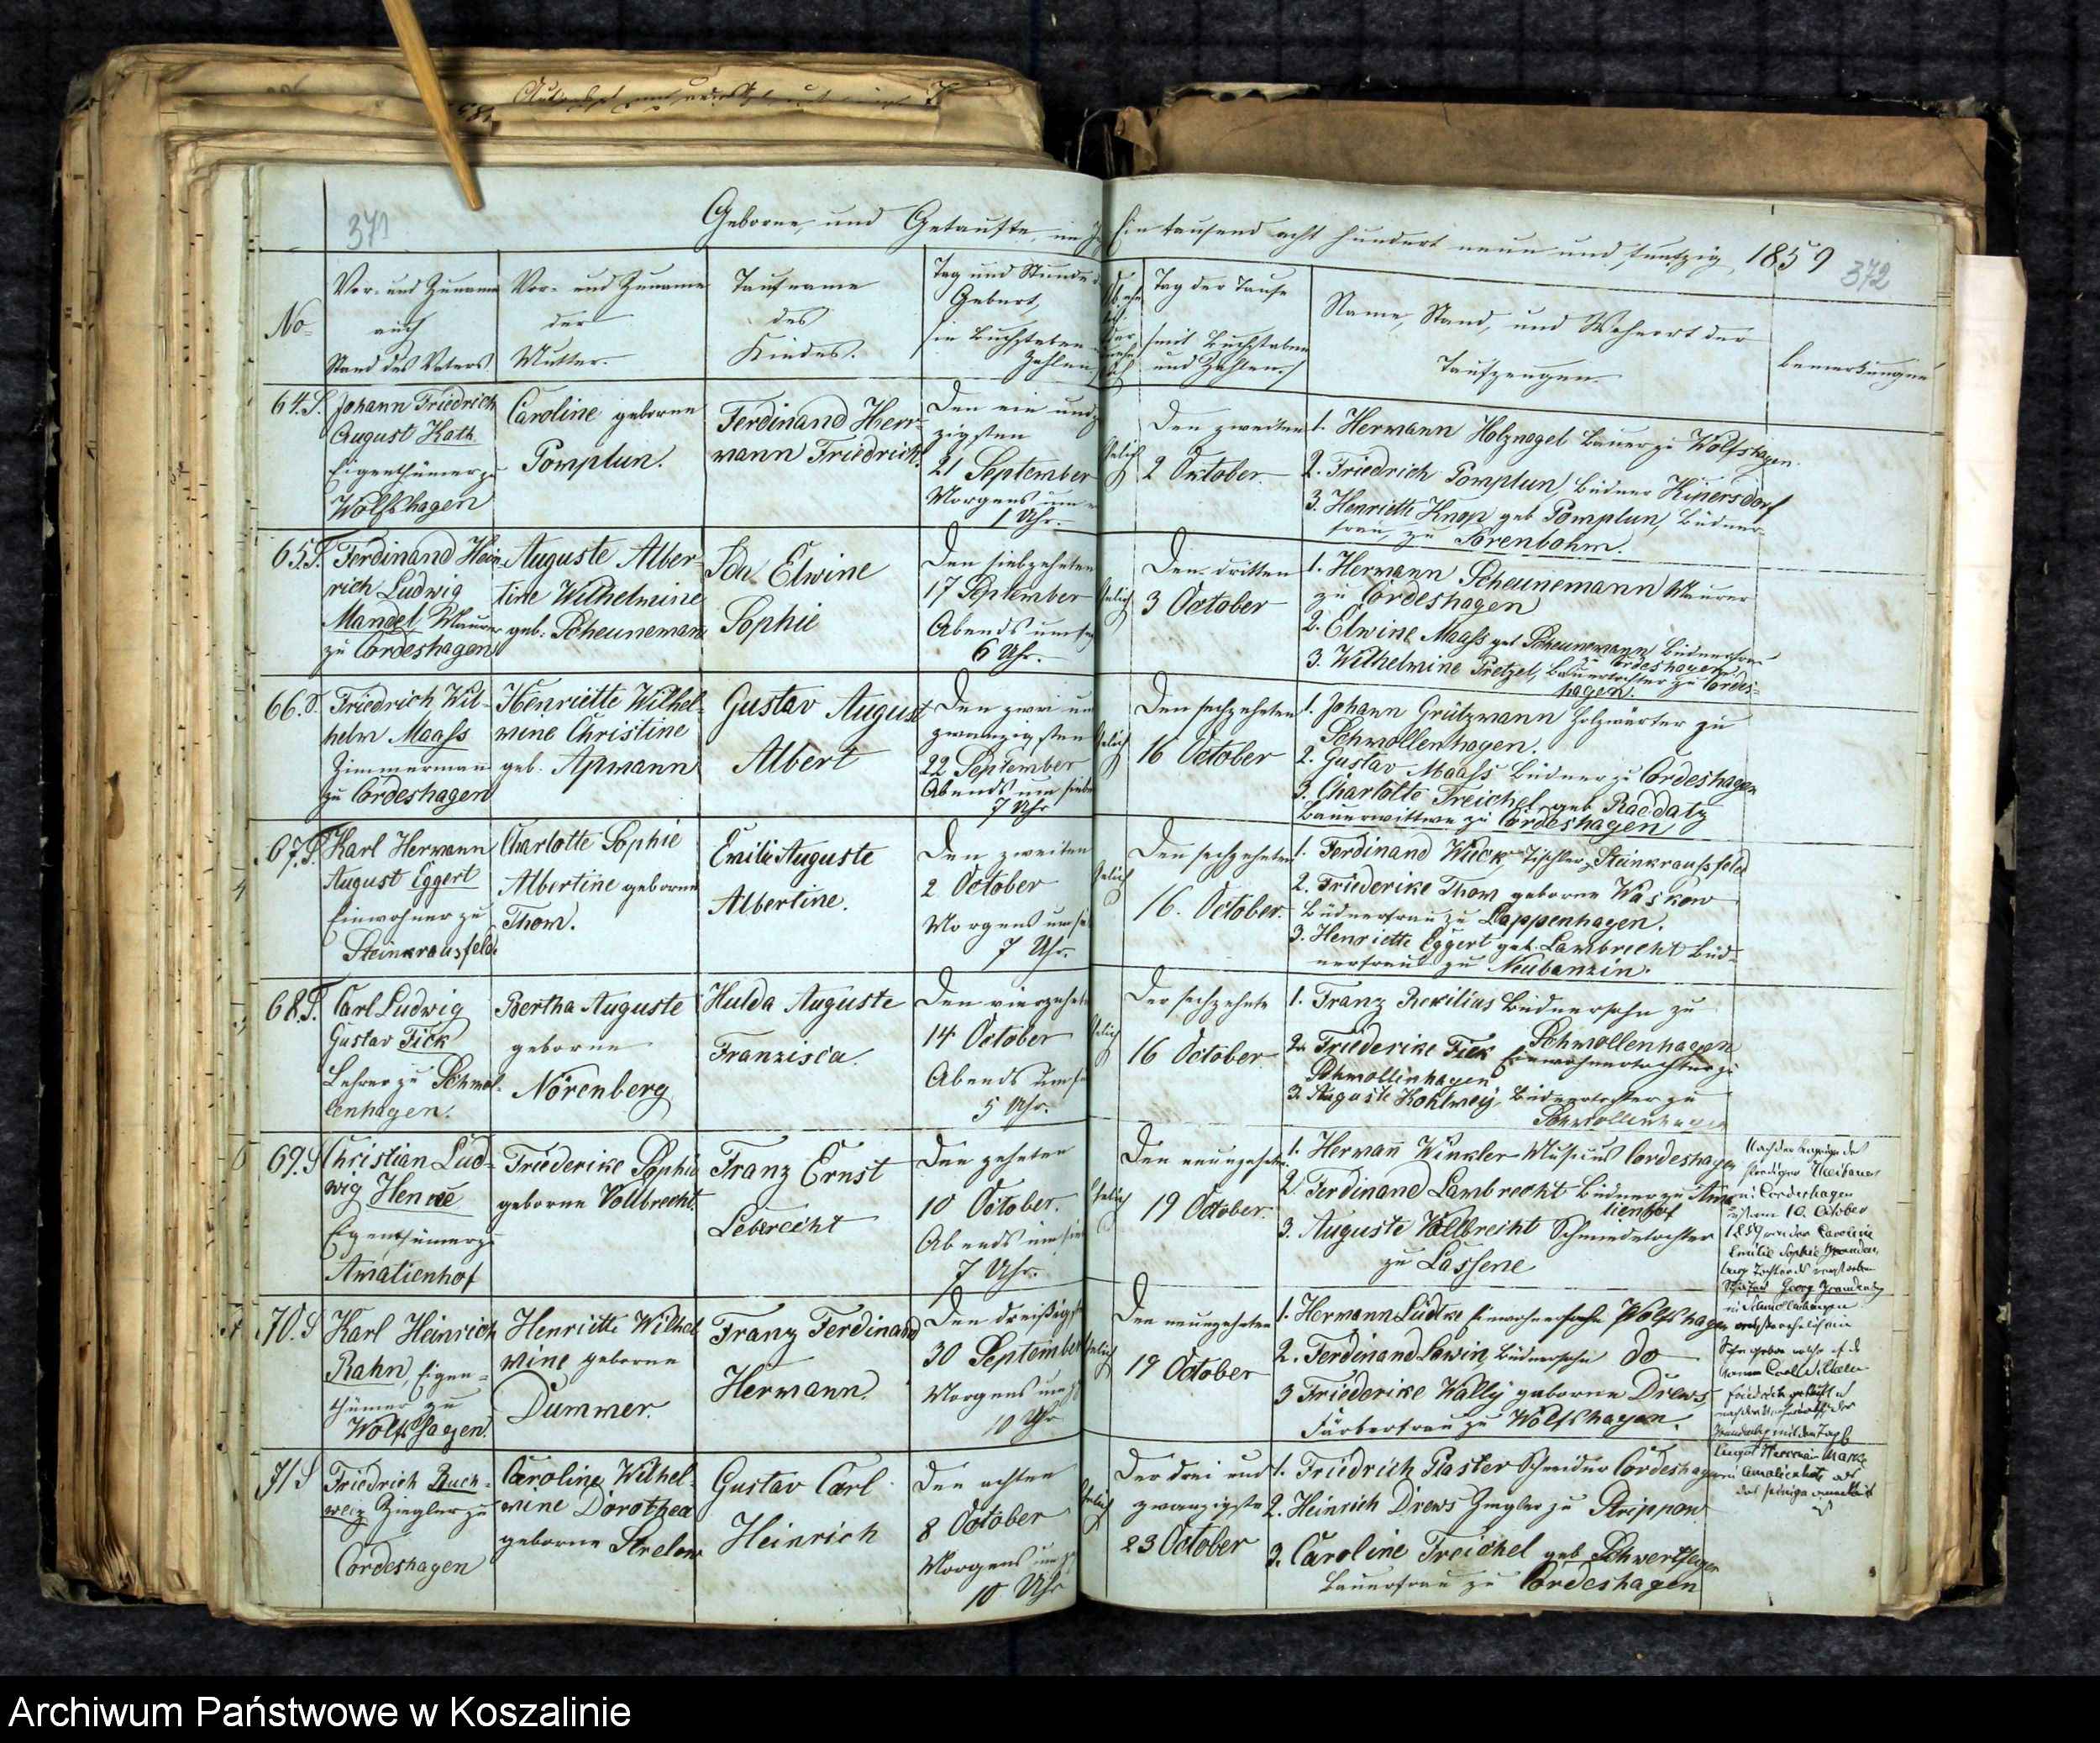 371
Geborne, und Getaufte, im
Ein tausend acht hundert neun und funfzig 1859
372
No
Vor- und Zuname
auch
Stand des Vaters
Vor- und Zuname
der
Mutter.
Taufname
des
Kindes.
Tag und Stunde
Geburt,
in Buchstaben
Zahlen
Tag der Taufe
mit Buchstaben
und Zahlen.
Name, Stand, und Wohnort der
Taufzeugen.
Bemerkungen
64. S.
Johann Friedrich
August Kath
Eigenthümer zu
Wolfshagen
Caroline geborne
Pomplun.
Ferdinand Herr-
mann Friedrich.
Den ein und
zigsten
21 September
Morgens um
1 Uhr.
Ehelich
Den zweiten
2 Oktober.
1. Hermann Holznagel Bauer zu Wolfshagen.
2. Friedrich Pomplun Büdner
3. Henriette Knop geb Pomplun, Büdner-
frau, zu Sorenbohm.
65. T.
Ferdinand Hein-
rich Ludwig
Mandel, Maurer
zu Cordeshagen
Auguste Alber-
tine Wilhelmine
geb: Scheunemann
Ida Elwine
Sophie
Den siebzehnten
17 September
Abends um
6 Uhr.
Ehelich
Den dritten
3 October
1. Hermann Scheunemann Maurer
zu Cordeshagen
2. Elwine Maass geb Scheunemann Büdnerfrau
zu Cordeshagen.
3. Wilhelmine Pretzel, Bauertochter zu Cordes-
hagen.
66. S.
Friedrich Wil-
helm Maass
Zimmermann
zu Cordeshagen
Henriette Wilhel-
mine Christine
geb. Apmann
Gustav August
Albert
Den zwei und
zwanzigsten
22 September
Abends um sieben
7 Uhr
Ehelich
Den sechzehnten
16 October
1. Johann Grützmann Holzwärter zu
Schmollenhagen.
2. Gustav Maass Büdner zu Cordeshagen
3. Charlotte Treichel geb Raddatz
Bauerwittwe zu Cordeshagen
67. T.
Karl Hermann
August Eggert
Einwohner zu
Steinkrausfelde
Charlotte Sophie
Albertine geborne
Thom.
Emilie Auguste
Albertine.
Den zweiten
2 October
Morgens um
7 Uhr.
Ehelich
Den sechzehnten
16. October.
1. Ferdinand Wieck, Tischler, Steinkraussfelde
2. Friederike Thom geborne Waskow
Büdnerfrau zu Kappenhagen.
3. Henriette Eggert geb. Lambrecht Büd-
nerfrau zu Neubanzin.
68. T.
Carl Ludwig
Gustav Fick
Lehrer zu Schmol-
lenhagen.
Bertha Auguste
geborne
Nörenberg
Hulda Auguste
Franzisca.
Den vierzehnten
14 October
Abends um
5 Uhr.
Ehelich
Der sechzehnte
16 October
1. Franz Büdnersohn zu
Schmollenhagen
2. Friederike Fick Einwohnertochter zu
Schmollenhagen
3. Auguste Kohlmey Büdnertochter zu
Schmollenhagen
69. S
Christian Lud-
wig Henke
Eigenthümer zu
Amalienhof
Friederike Sophie
geborne Vollbrecht.
Franz Ernst
Lebrecht
Den zehnten
10 October.
Abends um
7 Uhr.
Ehelich
Den neunzehnten
19 October.
1. Hermann Winkler Musicus Cordeshagen
2. Ferdinand Lambrecht Büdner zu Ama-
lienhof
3. Auguste Vollbrecht Schmiedetochter
zu Lassene
Nach der Anzeige des
Prediger
zu Cordeshagen
ist am 10. October
1859 von der Caroline
Emilie Sophie Branden-
burg Tochter des verstorbenen
Georg Brandenburg
in Schmollenhagen
ein
Sohn geboren
Namen Carl Wilhelm
Friedrich getauft
Brandenburg mit dem
August Hermann
zu Amalienhof als
das seinige anerkannt
ist
70. S
Karl Heinrich
Rahn, Eigen-
thümer zu
Wolfshagen.
Henriette Wilhel
mine geborne
Dummer.
Franz Ferdinand
Hermann.
Den dreißigsten
30 September
Morgens um
10 Uhr
Ehelich
Den neunzehnten
19 October
1. Hermann Lüdtke Einwohnersohn Wolfshagen
2. Ferdinand Lewin, Büdnersohn do
3 Friederike Wally geborne Drews
Färberfrau zu Wolfshagen.
71 S
Friedrich Buch-
weiz Ziegler zu
Cordeshagen
Caroline Wilhel-
mine Dorothea
geborne Strelow
Gustav Carl
Heinrich
Den achten
8 October
Morgens um
10 Uhr
Ehelich
Der drei und
zwanzigste
23 October
1. Friedrich Plaster Schneider Cordeshagen
2. Heinrich Drews Ziegler zu Strippow
3. Caroline Treichel geb Schwertfeger
Bauerfrau zu Cordeshagen
Archiwum Państwowe w Koszalinie